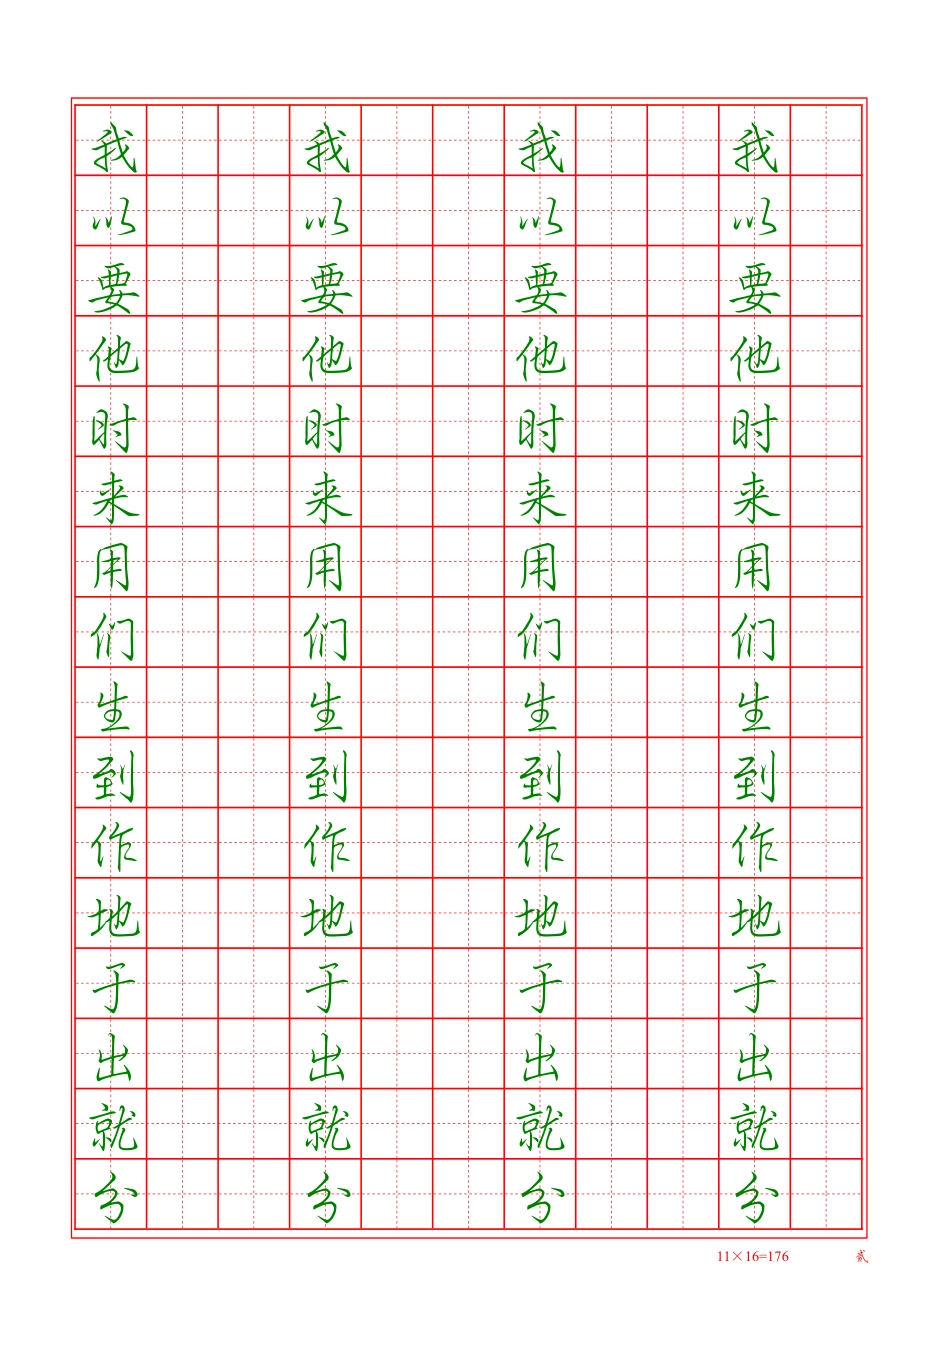 我 我 我 我
以 以 以 以
要 要 要 要
他 他 他 他
时 时 时 时
来 来 来 来
用 用 用 用
们 们 们 们
生 生 生 生
到 到 到 到
作 作 作 作
地 地 地 地
于 于 于 于
出 出 出 出
就 就 就 就
分 分 分 分
11×16=176 贰